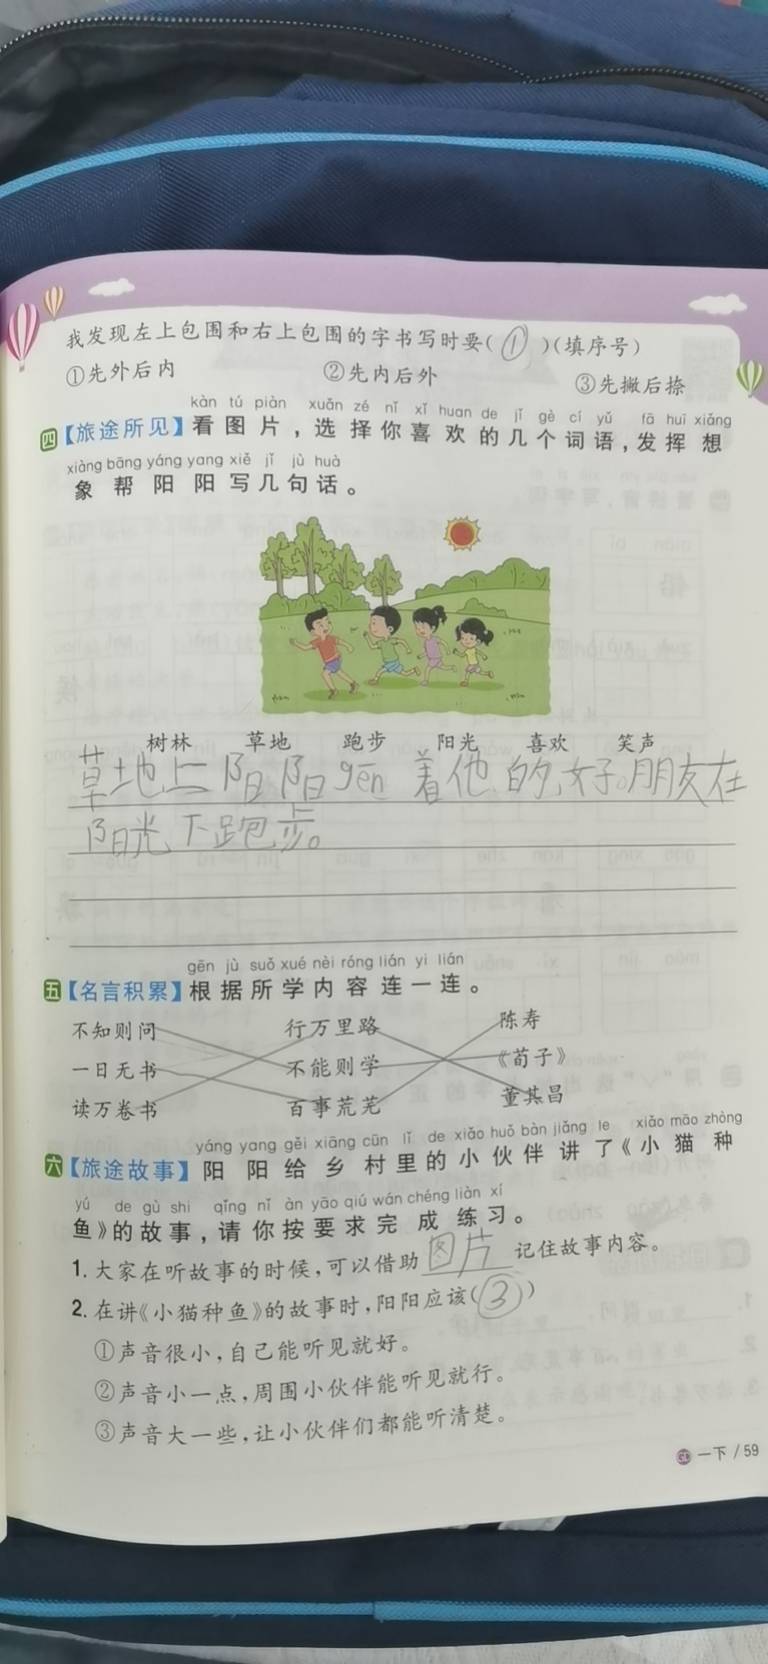 我发现左上包围和右上包围的字书写时要(①)(填序号)
①先外后内 ②先内后外 ③先撇后捺
kàn tú piàn xuǎn zé nǐ xǐ huan de jǐ gè cí yǔ fā huī xiǎng
四【旅途所见】看图片，选择你喜欢的几个词语，发挥想
xiàng bāng yáng yang xiě jǐ jù huà
象帮阳阳写几句话。
树林 草地 跑步 阳光 喜欢 笑声
草地上阳阳gēn着他的好朋友在
阳光下跑步。
gēn jù suǒ xué nèi róng lián yi lián
五【名言积累】根据所学内容连一连。
不知则问 行万里路 陈寿
一日无书 不能则学 《荀子》
读万卷书 百事荒芜 董其昌
yáng yang gěi xiāng cūn lǐ de xiǎo huǒ bàn jiǎng le xiǎo māo zhòng
六【旅途故事】阳阳给乡村里的小伙伴讲了《小猫种
yú de gù shi qǐng nǐ àn yāo qiú wán chéng liàn xí
鱼》的故事，请你按要求完成练习。
1. 大家在听故事的时候，可以借助图片记住故事内容。
2. 在讲《小猫种鱼》的故事时，阳阳应该(③)
①声音很小，自己能听见就好。
②声音小一点，周围小伙伴能听见就行。
③声音大一些，让小伙伴们都能听清楚。
一下 / 59